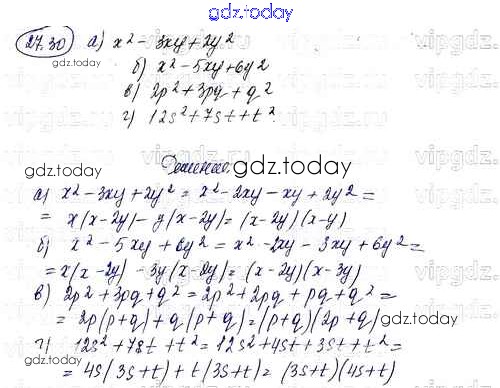 gdz.today
27.30 а) x² - 3xy + 2y²
б) x² - 5xy + 6y²
в) 2p² + 3pq + q²
г) 12s² + 7st + t²
Решение.
а) x² - 3xy + 2y² = x² - 2xy - xy + 2y² =
= x(x - 2y) - y(x - 2y) = (x - 2y)(x - y)
б) x² - 5xy + 6y² = x² - 2xy - 3xy + 6y² =
= x(x - 2y) - 3y(x - 2y) = (x - 2y)(x - 3y)
в) 2p² + 3pq + q² = 2p² + 2pq + pq + q² =
= 2p(p + q) + q(p + q) = (p + q)(2p + q)
г) 12s² + 7st + t² = 12s² + 4st + 3st + t² =
= 4s(3s + t) + t(3s + t) = (3s + t)(4s + t)